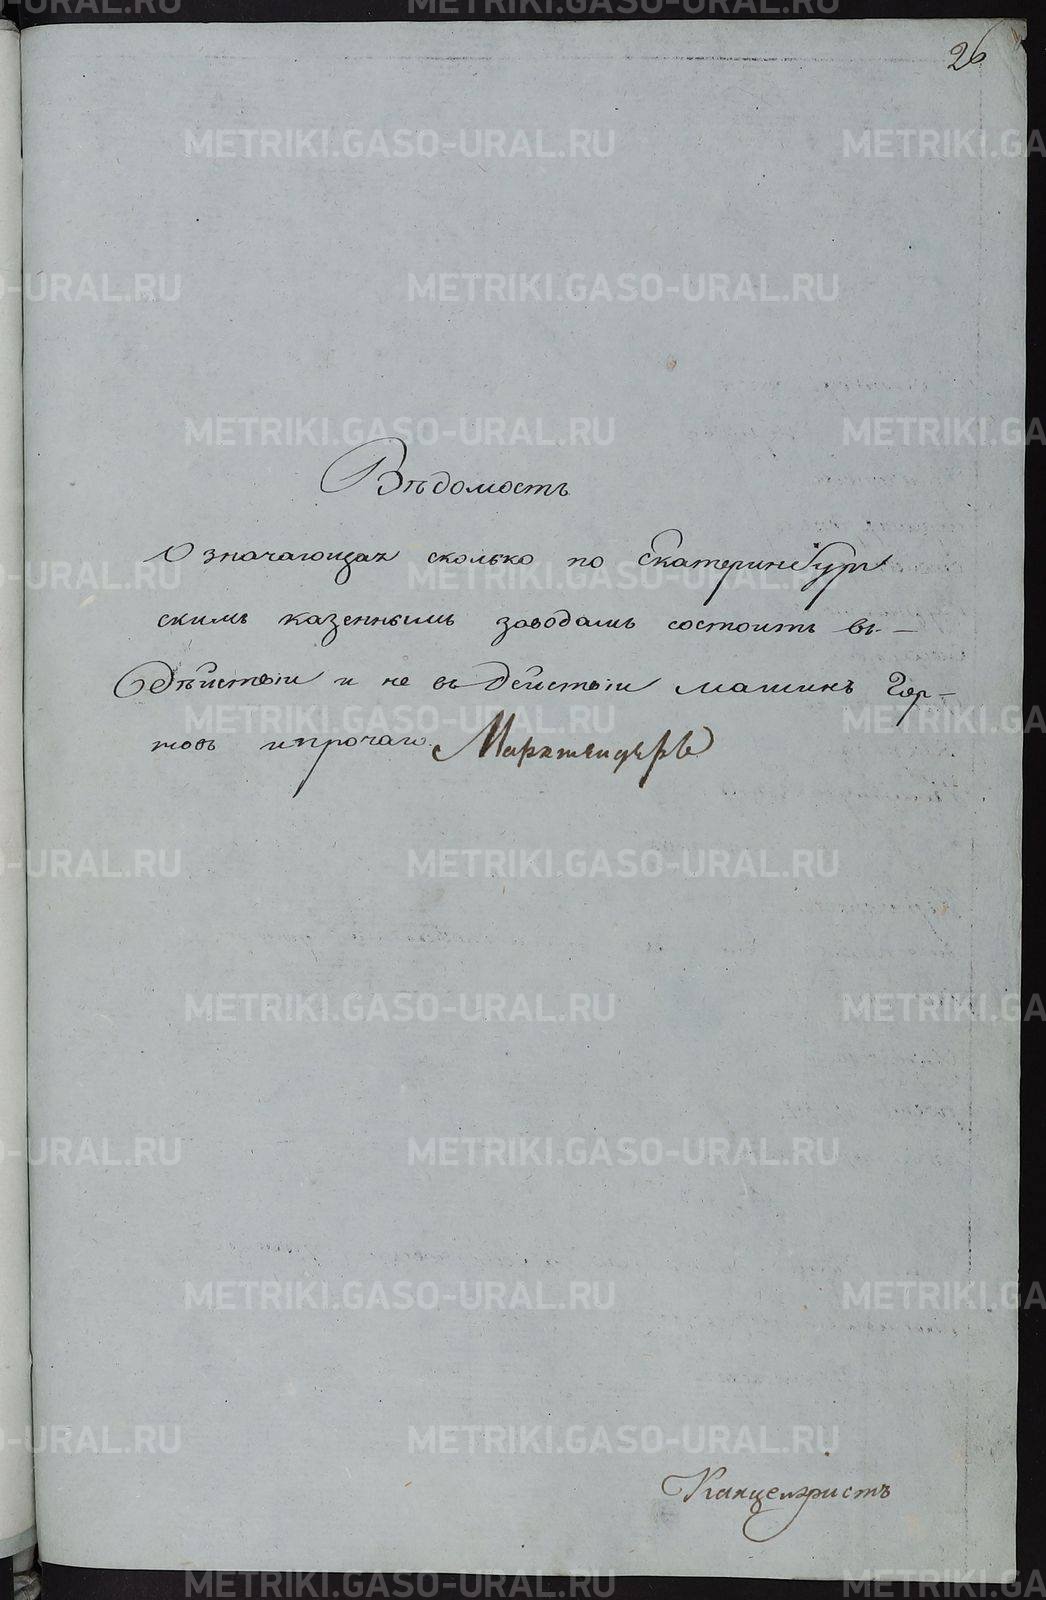 26
Вѣдомость
Означающая сколько по Екатеринбург
скимъ казеннымъ заводамъ состоитъ въ-
дѣйствіи и не въ дѣйствіи машинъ Гор-
новъ ипрочаго.
Канцеляристъ
METRIKI.GASO-URAL.RU